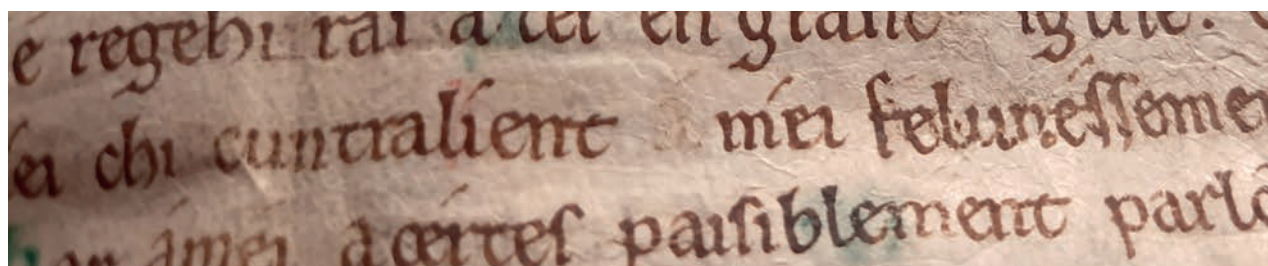 e regehirai a tei en grant iglise.
ei chi cuntralient a mei felunessemen
ar a mei acertes paisiblement parlo